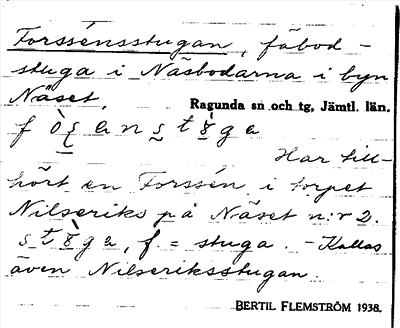 Forssénsstugan, fäbod-
stuga i Näsbodarna i byn
Näset, Ragunda sn och tg, Jämtl. län.
Har till-
hört en Forssén i torpet
Nilseriks på Näset n:r 2.
f. = stuga. - Kallas
även Nilseriksstugan.
BERTIL FLEMSTRÖM 1938.